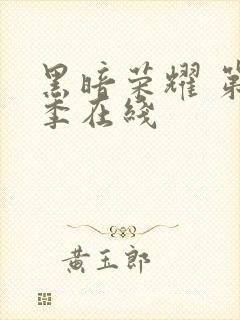 黑暗荣耀 第
季在线
黄玉郎